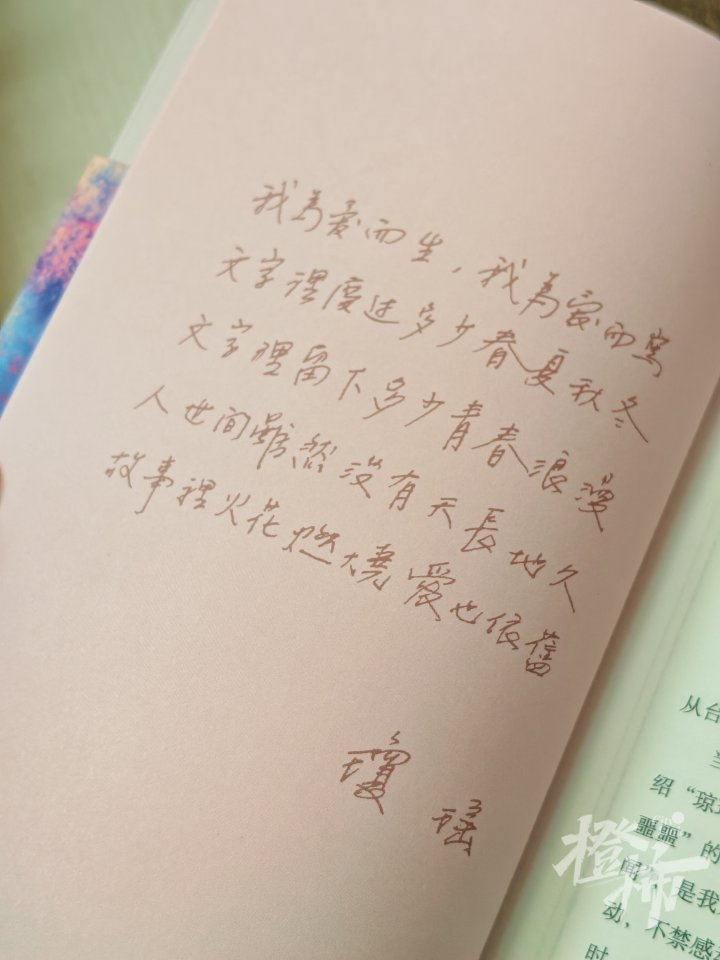 我為愛而生，我為愛而寫
文字裡度过多少春夏秋冬
文字裡留下多少青春浪漫
人世间雖然没有天長地久
故事裡火花燃燒愛也依舊
瓊瑤
从台
当
绍“琼
噩噩”的
闻”是我
动，不禁感
时
橙柿